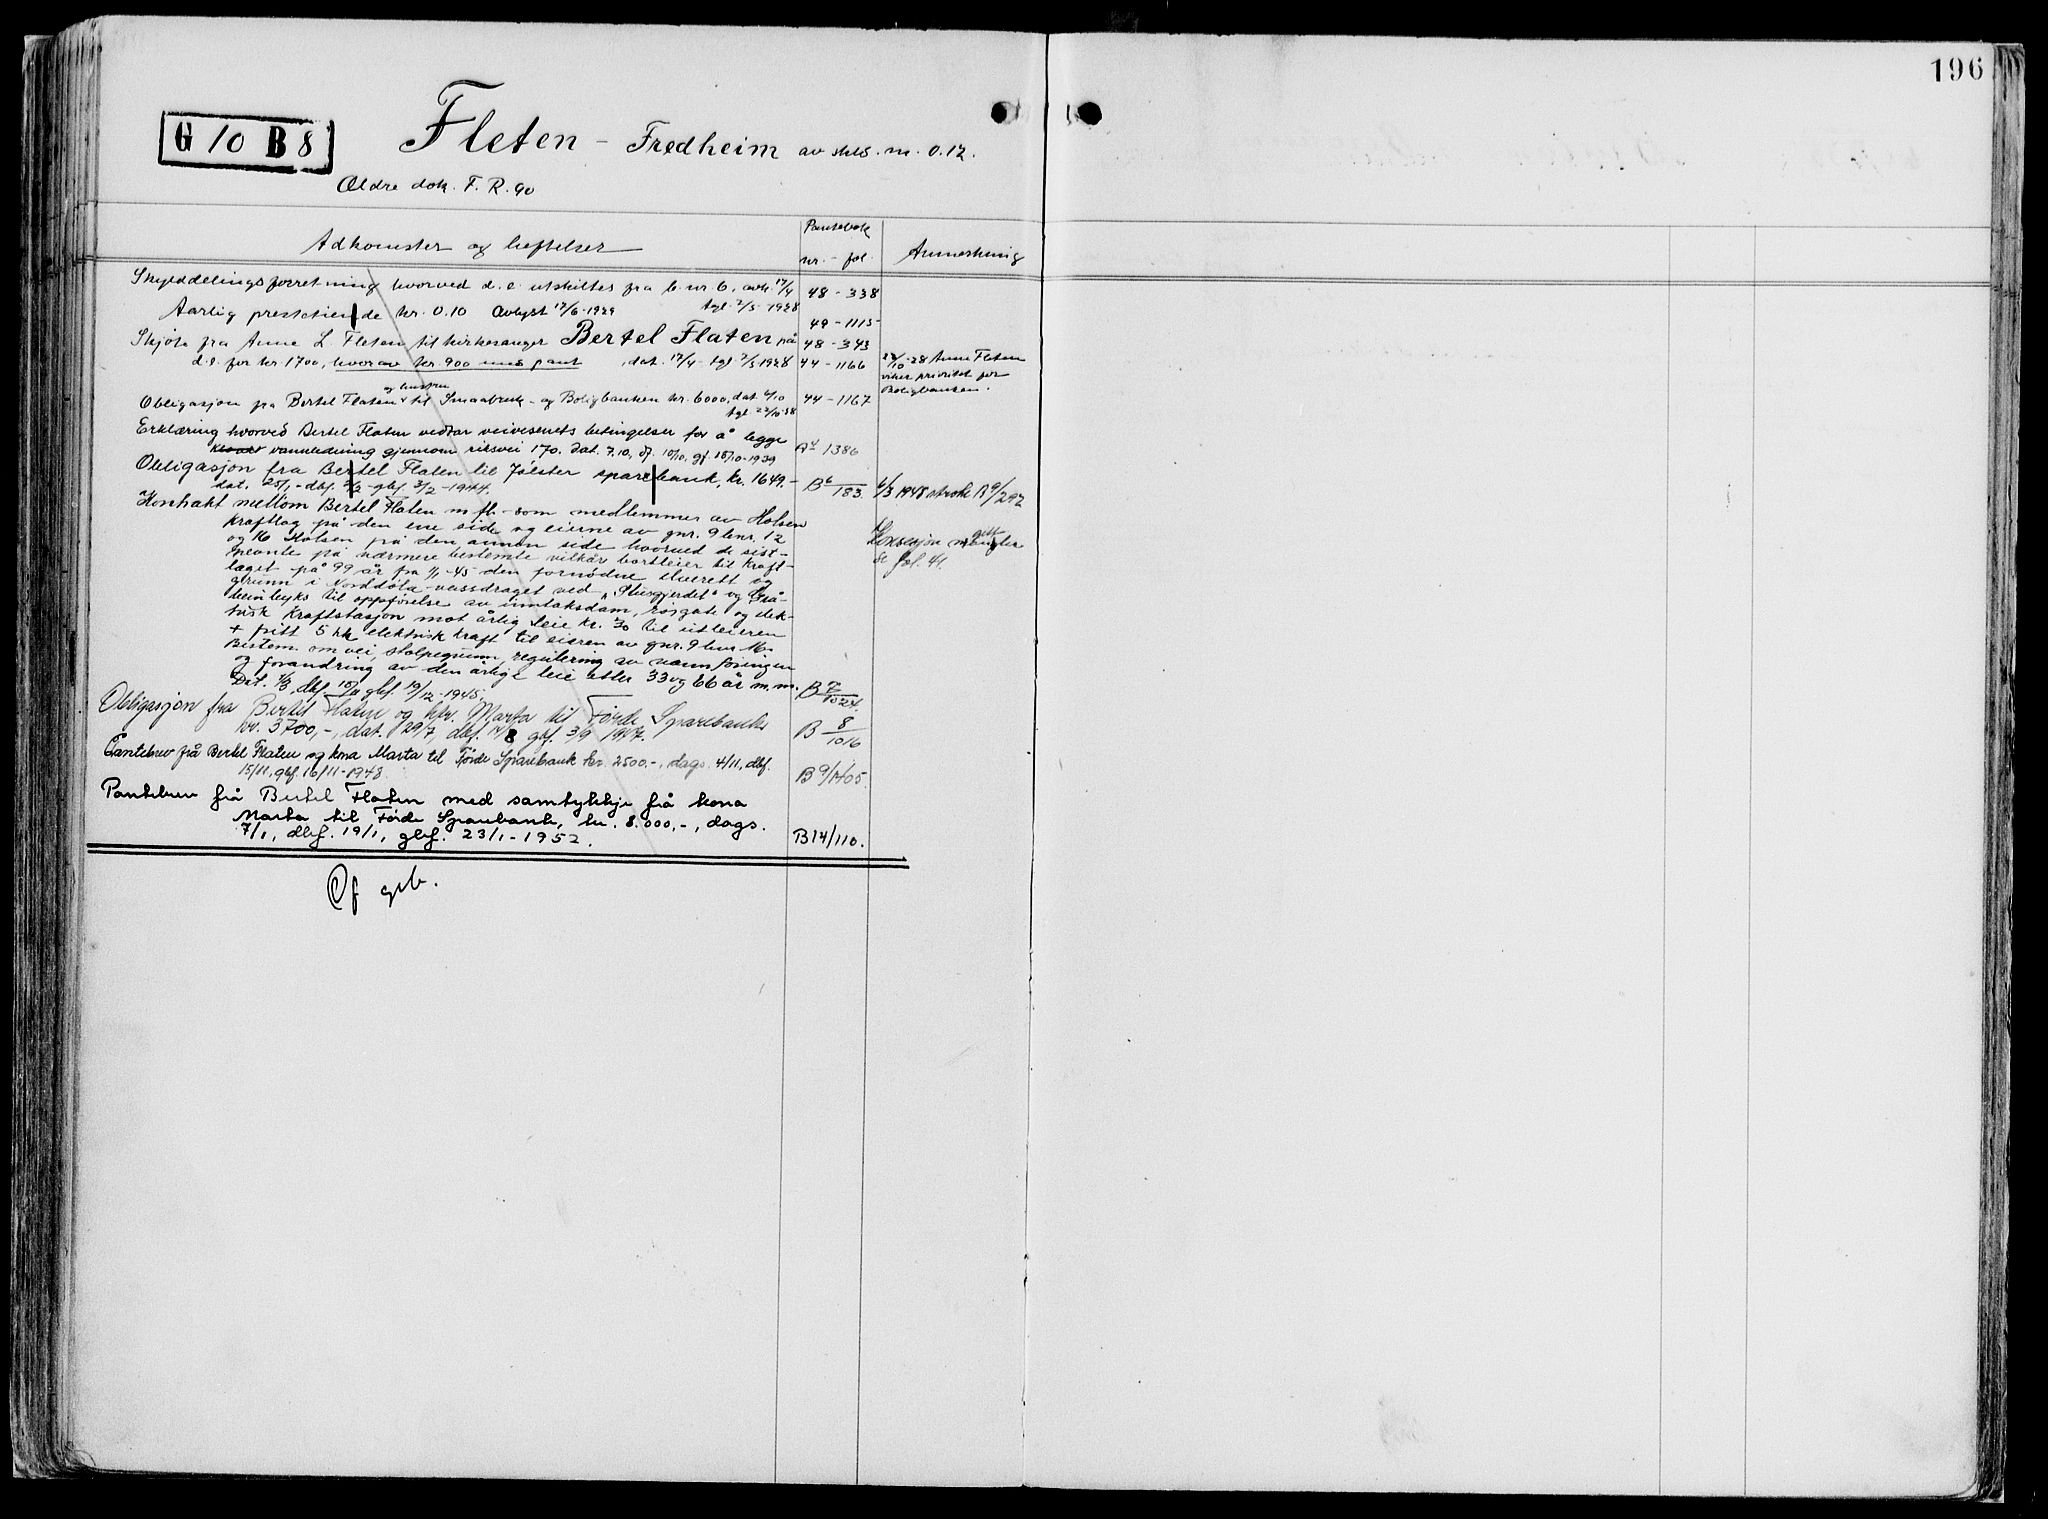 196
G 10 B 8
Fleten - Fredheim av skld. m. 0.12.
Ældre dok. F. R. 90
Adkomster og heftelser
Pantebok
nr. - fol.
Anmerkning
Skylddelingsforretning hvorved d. e. utskiltes fra b. nr. 6, avh. 17/4 tgl. 2/5 - 1928 48 - 338
Aarlig prestetiende kr. 0.10 Avlyst 17/6 - 1929 49 - 1115
Skjøte fra Anne L. Fleten til kirkesanger Bertel Flaten på 48 - 343
d. e. for kr. 1700, hvorav kr. 900 mot pant, dat. 17/4 - tgl. 2/5 1928 44 - 1166
22/10 - 28 Anne Fleten
viker prioritet for
Boligbanken.
og hustru
Obligasjon fra Bertel Flaten til Smaabruk- og Boligbanken kr. 6000, dat. 4/10 tgl. 22/10 28 44 - 1167
Erklæring hvorved Bertel Flaten vedtar veivesenets betingelser for å legge
vannledning gjennom riksvei 170. dat. 7.10, df. 10/10, gf. 15/10 - 1939 B 4 1386
Obligasjon fra Bertel Flaten til Jølster sparebank, kr. 1649.-
dat. 25/1 - dbf. 2/2 - gbf. 3/2 - 1944. B 6/183. 6/3 1948 stroke B 9/292
Kontrakt mellom Bertel Flaten m fl - som medlemmer av Holsen
kraftlag på den ene side og eierne av gnr. 9 bnr. 12
og 16 Holsen på den annen side hvorved de sist-
nevnte på nærmere bestemte vilkår bortleier til kraft-
laget på 99 år fra 1/1 - 45 den fornødne elverett og
grunn i Norddøla-vassdraget ved "Stusgjerdet" og
til oppførelse av inntaksdam, rørgate og elek-
trisk kraftstasjon mot årlig leie kr. 70 til utleieren
+ fritt 5 kw elektrisk kraft til eieren av gnr. 9 bnr 16.
Bestem. om vei, stolpegrunn, regulering av vannføringen
og forandring av den årlige leie etter 33 og 66 år m. m.
Dat. 7/3, dbf. 15/11 gbf. 19/12 - 1945. B 7/1024.
Konsesjon mangler gitt
Se fol. 44.
Obligasjon fra Bertel Flaten og hfr. Marta til Førde Sparebank
kr. 3700,-, dat. 29/7, dbf. 14/8 gbf. 3/9 1947. B 8/1016
Pantebrev frå Bertel Flaten og kona Marta til Førde Sparebank kr. 2500.-, dags. 4/11, dbf.
15/11, gbf. 16/11 - 1948 B 9/1405.
Pantebrev frå Bertel Flaten med samtykkje frå kona
Marta til Førde Sparebank, kr. 8.000,-, dags.
7/1, dbf. 19/1, gbf. 23/1 - 1952. B 14/110.
Of grb.